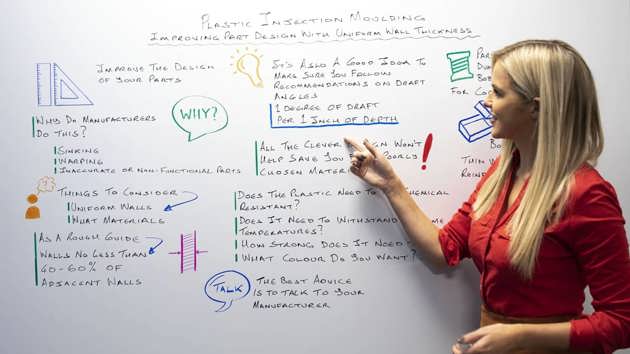 Plastic Injection Moulding
Improving Part Design With Uniform Wall Thickness
Improve The Design
Of Your Parts
Why Do Manufacturers
Do This?
Sinking
Warping
Inaccurate or Non-Functional Parts
Why?
?
Things To Consider
Uniform Walls
What Materials
As A Rough Guide
Walls No Less Than
40-60% Of
Adjacent Walls
It's Also A Good Idea To
Make Sure You Follow
Recommendations On Draft
Angles
1 Degree of Draft
Per 1 Inch of Depth
All The Clever
Won't
Help Save You
Poorly
Chosen
!
Does The Plastic Need To
Chemical
Resistant?
Does It Need To Withstand
Temperatures?
How Strong Does It Need
What Colour Do You Want?
Talk
The Best Advice
Is To Talk To Your
Manufacturer
For
Thin